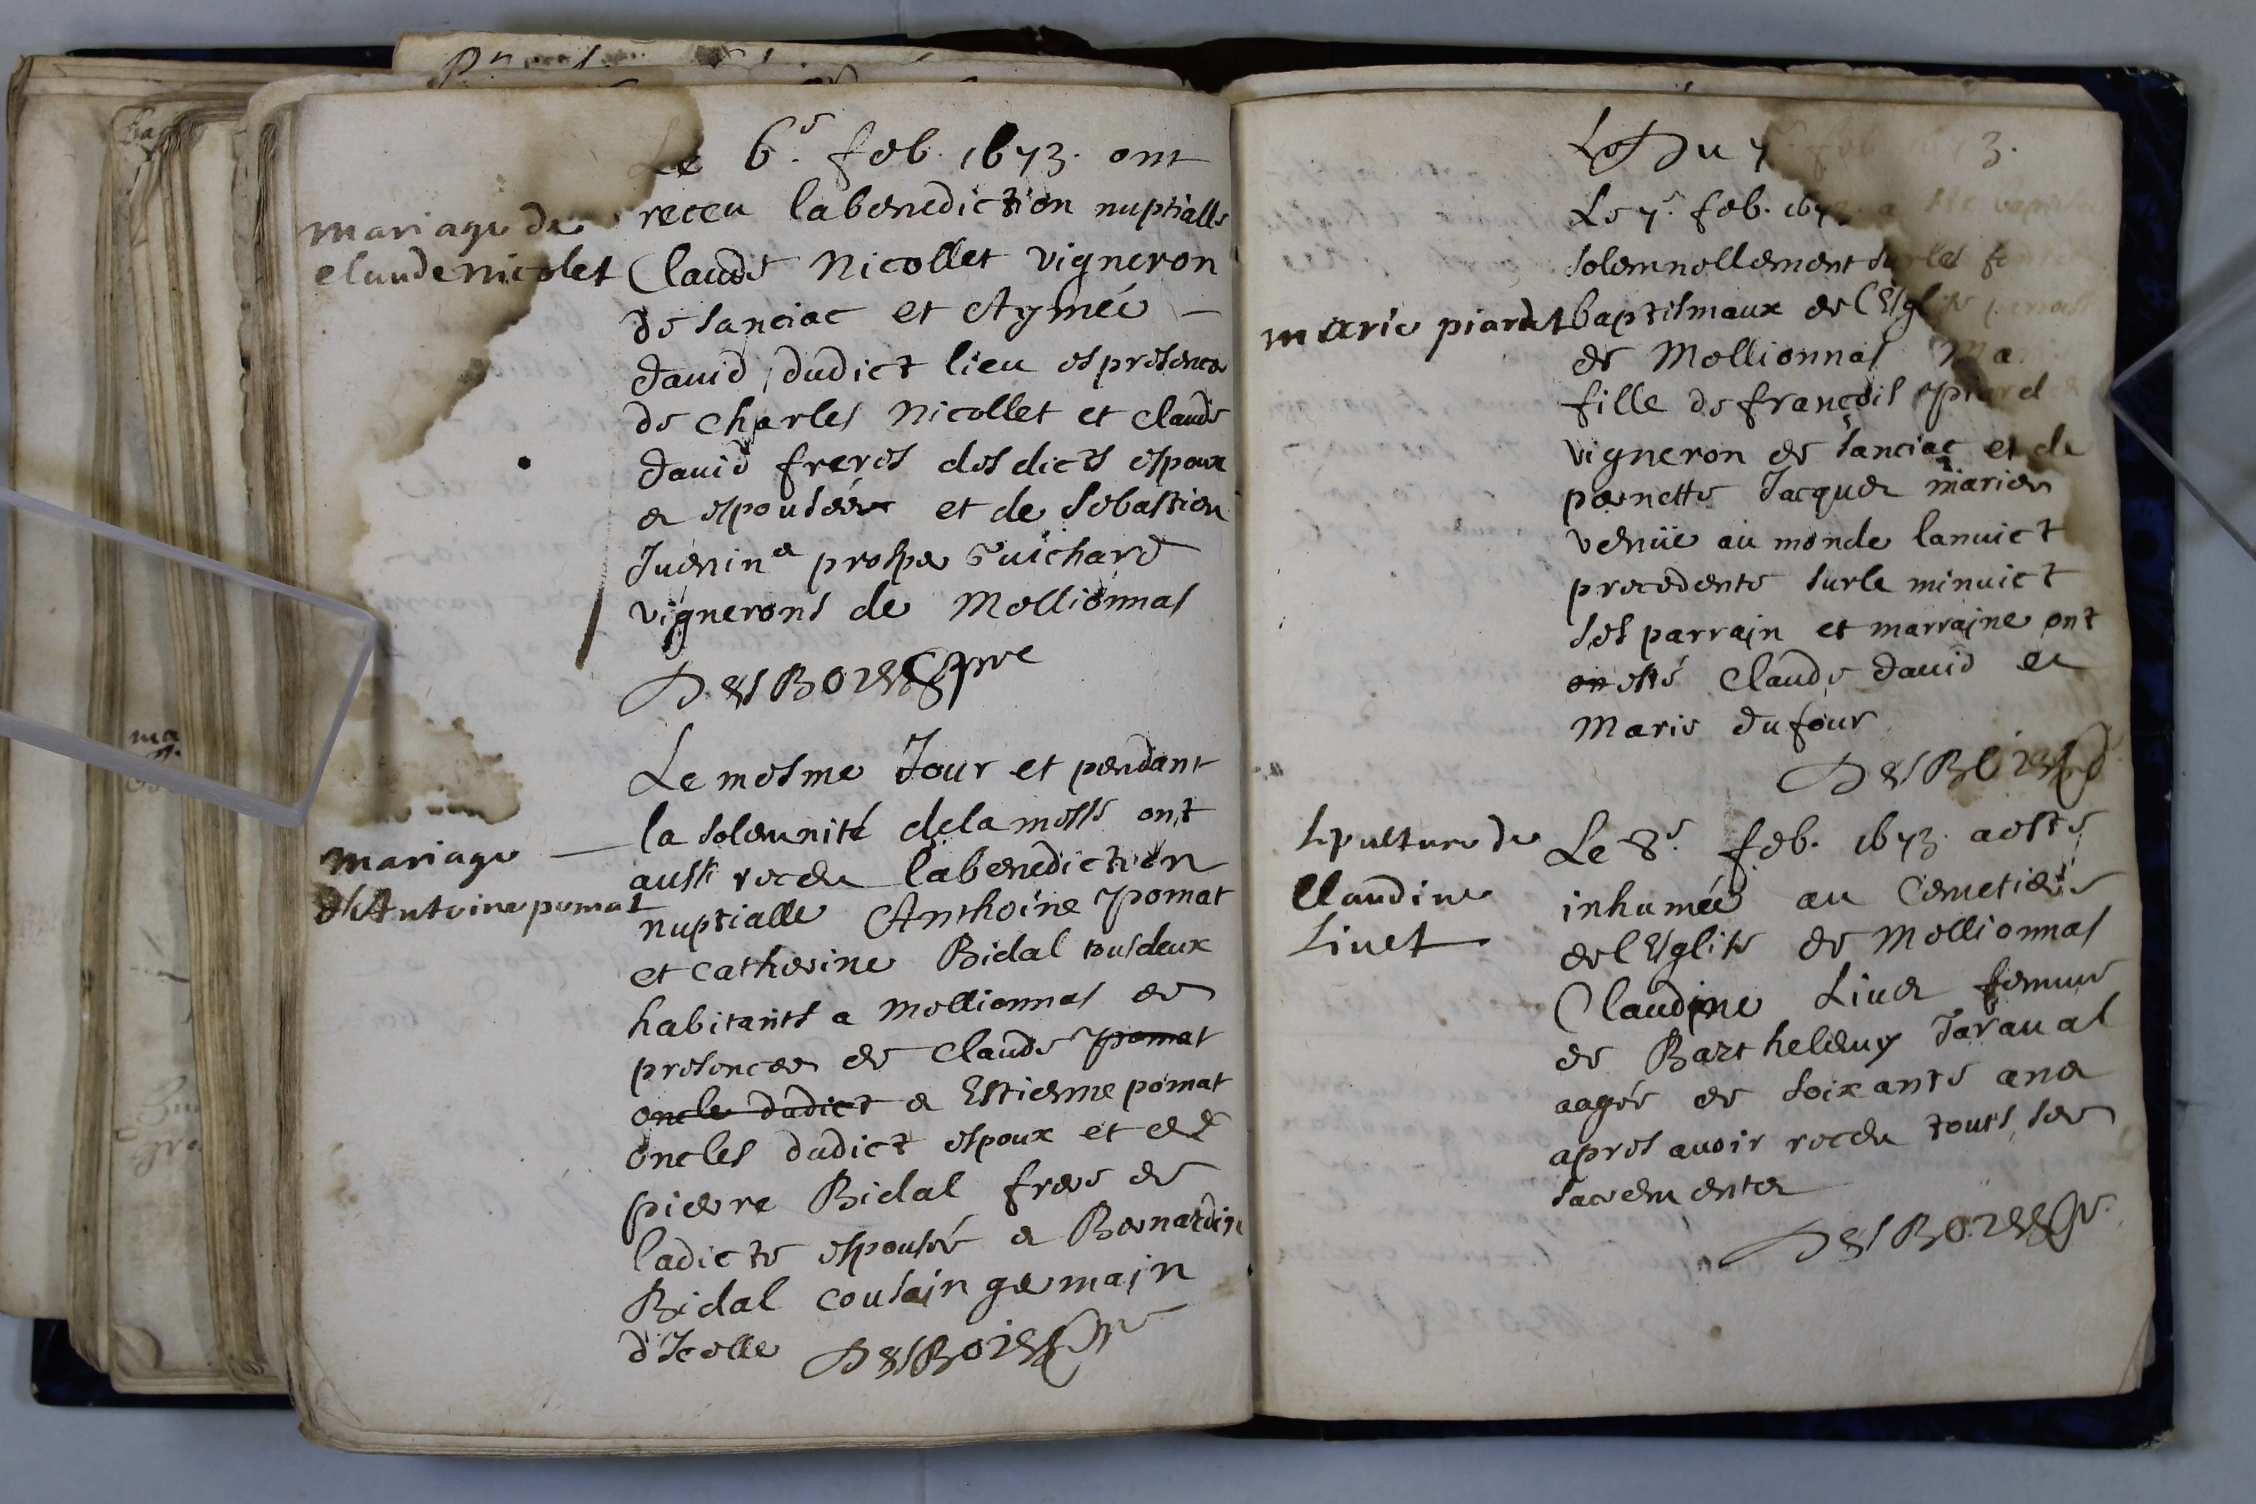 Le 6e. feb. 1673. ont
receu la benediction nuptialle
mariage de
claude nicolet
Claude Nicollet vigneron
de sanciac et Aymée
david dudict lieu es presence
de Charles Nicollet et claude
david freres desdicts espoux
et espousée et de Sebastien
Juenin et prospe Guichard
vignerons de Mellionnas
DesBois pre
Le mesme Jour et pendant
la solemnité de la messe ont
mariage
d'Antoine pomat
aussi receu la benediction
nuptialle Anthoine Pomat
et Catherine Bidal tous deux
habitants a Mellionnas de
presences de Claude Pomat
oncle dudict et Estienne pomat
oncles dudict espoux et de
pierre Bidal frere de
ladicte espousée et Bernardin
Bidal cousain germain
d'Icelle DesBois pre
Le Du 7 feb 1673.
Le 7e. feb. 1673. a
solemnellement sur les
marie piardet
baptismaux de l'Eglise
de Mellionnas Ma
fille de françois piard
vigneron de sanciac et de
pernette Jacquet mariez
venüe au monde lanuict
precedente sur le minuict
ses parrain et marraine ont
on esté Claude david et
Marie dufour
DesBois
sepulture de
Claudine
Livet
Le 8e. feb. 1673. a esté
inhumée au Cemetiere
de l'Eglise de Mellionnas
Claudine Livet femme
de Barthelemy Taraval
aagée de soixante ans
apres avoir receu touts ses
sacrements
DesBois pre.